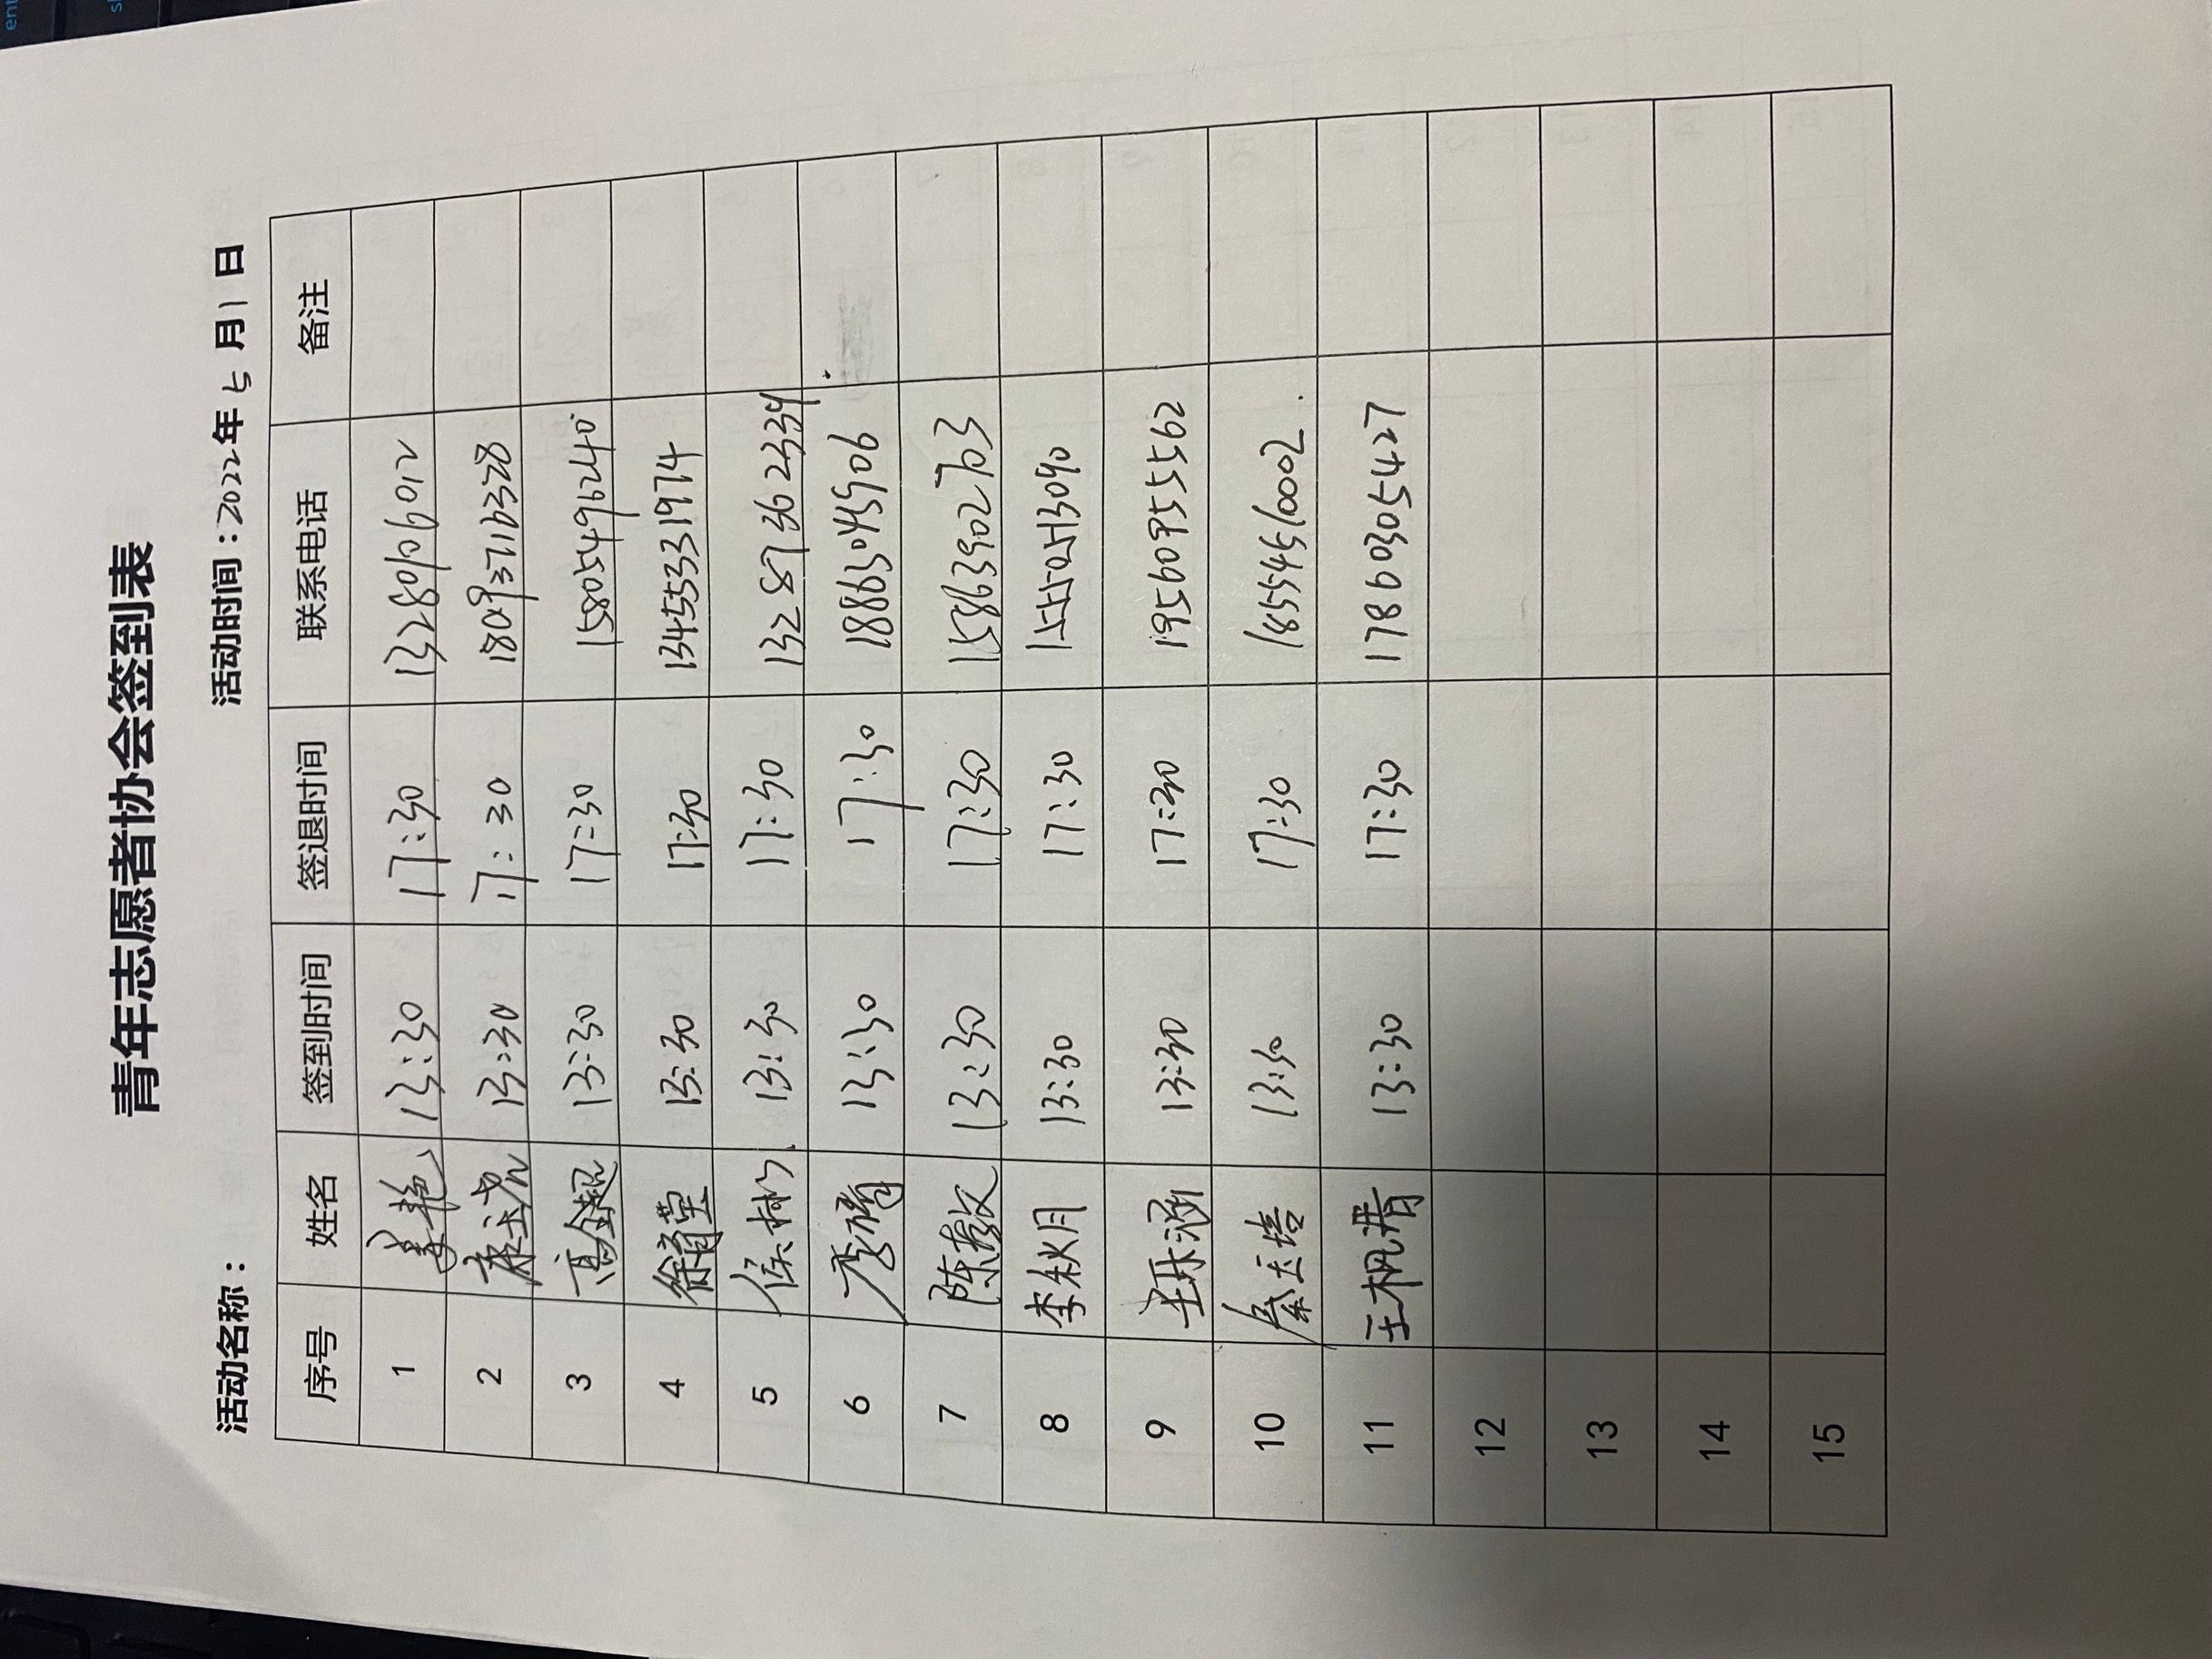 青年志愿者协会签到表
活动名称： 活动时间：2022年 七 月 1 日
序号 姓名 签到时间 签退时间 联系电话 备注
1 姜艳 13:30 17:30 13280106012
2 13:30 17:30 18093716328
3 高金超 13:30 17:30 15805496240
4 徐肖莹 13:30 17:30 13455331974
5 侯树 13:30 17:30 13287362339
6 13:30 17:30 18863045906
7 陈教 13:30 17:30 15863902703
8 李秋月 13:30 17:30
9 13:30 17:30 19560955562
10 秦玉培 13:30 17:30 18554510002
11 王枫港 13:30 17:30 17860305427
12
13
14
15